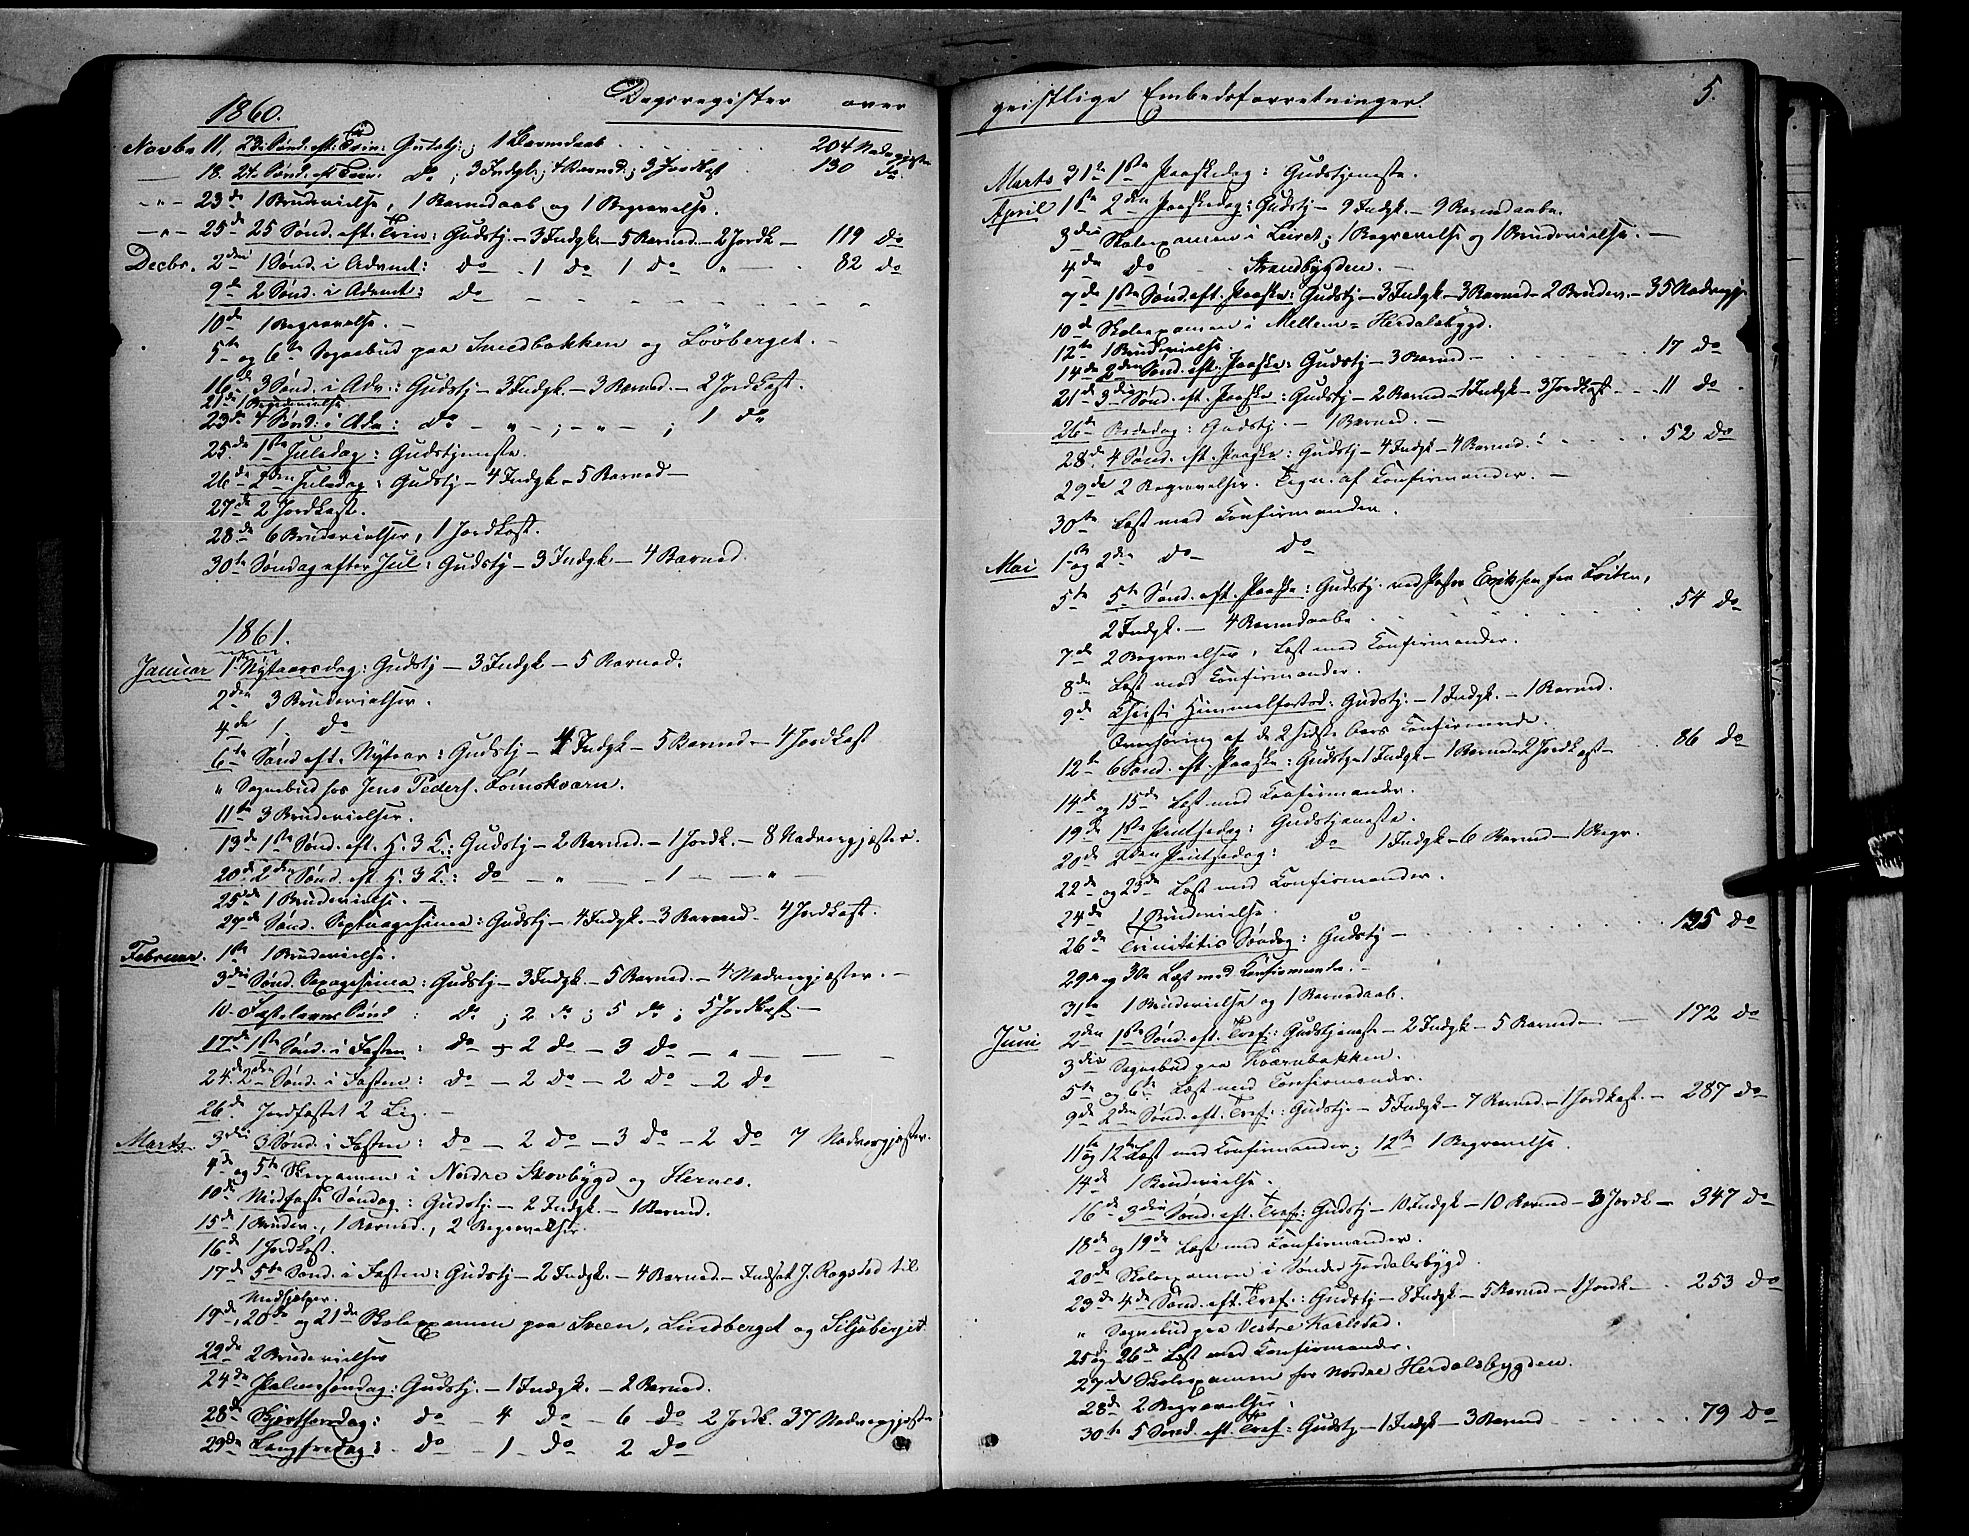 Dagsregister over
1860.
Novbr. 11. 23. Sønd. eft. Trin: Gudstj; 1 Barnedaab . . . 204 Nadvgjæster
— 18. 24. Sønd. eft Trin: Do; 3 Indgk; 4 Barned.; 3 Jordkast . . 130 do
-"- 23de 1 Brudevielse, 1 Barnedaab og 1 Begravelse.
-"- 25de 25 Sønd. eft. Trin: Gudstj - 3 Indgk - 5 Barned - 2 Jordk - 119 do
Decbr. 2den 1 Sønd. i Advent: do - 1 do 1 do " — . 82 do
9de 2 Sønd. i Advent: do - - - - - - -
10de 1 Begravelse. -
5te og 6te Sognebud paa Smedbakken og Løvberget. -
16de 3 Sønd. i Adv.: Gudstj - 3 Indgk. - 3 Barned. - 2 Jordkast.
21de 1 Brudevielse
23de 4 Sønd. i Adv: do - " - ; - " - ; 1 do
25de 1ste Juledag: Gudstjeneste.
26de 2den Juledag: Gudstj - 4 Indgk - 5 Barned -
27de 2 Jordkast.
28de 6 Brudevielser, 1 Jordkast.
30te Søndag efter Jul: Gudstj - 3 Indgk - 4 Barned.
1861.
Januar 1ste Nytaarsdag: Gudstj - 3 Indgk - 5 Barned.
2den 3 Brudevielser.
4de 1 do
6te Sønd eft. Nytaar: Gudstj - 4 Indgk - 5 Barned - 4 Jordkast
" Sognebud hos Jens Peders. Lømskværn.
11te 3 Brudevielser.
13de 1ste Sønd. eft. H. 3 K.: Gudstj - 2 Barned. - 1 Jordk. - 8 Nadvergjæster.
20de 2den Sønd. eft H. 3 K.: do - " - - 1 - " -
25de 1 Brudevielse. -
27de Sønd. Septuagesima: Gudstj - 4 Indgk. - 3 Barned - 4 Jordkast.
Februar. 1ste 1 Brudevielse.
3die Sønd. Sexagesima: Gudstj - 3 Indgk - 5 Barned. - 4 Nadvergjæster. -
10. Fastelavns Sønd : do ; 2 do ; 5 do ; 5 Jordkast. -
17de 1ste Sønd. i Fasten: do - 2 do - 3 do - " - - -
24de 2den Sønd. i Fasten: do - 2 do - 2 do - 2 do
26de Jordfæstet 2 Lig. -
Marts. 3die 3 Sønd. i Fasten: do - 2 do - 3 do - 2 do 7 Nadvergjæster.
4de og 5te Skexamen i Nordre Skovbygd og Hernes.
10de Midfaste Søndag: Gudstj. - 2 Indgk. - 1 Barned.
15de 1 Brudev., 1 Barned., 2 Begravelser.
16de 1 Jordkast.
17de 5te Sønd. i Fasten: Gudstj - 2 Indgk. - 4 Barned - Indsat J. Rogstad til
Medhjelper.
19de, 20de og 21de Skolexamen paa Sveen, Lindberget og Siljuberget.
22de 2 Brudevielser
24de Palmesøndag: Gudstj. - 1 Indgk. - 2 Barned.
28de Skjertorsdag: do - 4 do - 6 do 2 Jordk. 37 Nadvergjæster
29de Langfredag: do - 1 - do 2 do
geistlige Embedsforretninger.
5.
Marts 31te 1ste Paaskedag: Gudstjeneste.
April 1ste 2den Paaskedag: Gudstj - 9 Indgk. - 9 Barnedaabe.
3die Skolexamen i Leiret; 1 Begravelse og 1 Brudevielse. -
4de do - Strandbygden. -
7de 1ste Sønd. eft. Paaske: Gudstj - 3 Indgk - 3 Barned - 2 Brudev. - 35 Nadvergj.
10de Skolexamen i Mellem-Herdalsbygd.
12te 1 Brudevielse.
14de 2den Sønd. eft. Paaske: Gudstj - 3 Barned - . . . 17 do
21de 3die Sønd. eft. Paaske: Gudstj - 2 Barned - 1 Indgk - 3 Jordkast - . . 11 do
26te Bededag: Gudstj. - 1 Barned. -
28de 4 Sønd. eft. Paaske: Gudstj - 4 Indgk - 4 Barned . . . 52 do
29de 2 Begravelser. Tegn. af Confirmander. -
30te Læst med Confirmander.
Mai 1ste og 2den do do
5te 5te Sønd. eft. Paaske: Gudstj. ved Pastor Eriksen fra Løiten,
2 Indgk. - 4 Barnedaabe . . . 54 do
7de 2 Begravelser. Læst med Confirmander.
8de Læst med Confirmander.
9de Christi Himmelfartsd: Gudstj. - 1 Indgk. - 1 Barned.
Overhøring af de 2 sidste Aars Confirmerede.
12te 6 Sønd. eft. Paaske: Gudstj - 1 Indgk - 1 Barned - 2 Jordkast - . . 86 do
14de og 15de Læst med Confirmander.
19de 1ste Pintsedag: Gudstjeneste.
20de 2den Pintsedag: do 1 Indgk - 6 Barned - 1 Begr.
22de og 23de Læst med Confirmander.
24de 1 Brudevielse.
26de Trinitatis Søndag: Gudstj - . . . 125 do
29de og 30te Læst med Confirmander. -
31te 1 Brudevielse og 1 Barnedaab.
Juni 2den 1ste Sønd. eft. Tref: Gudstjeneste - 2 Indgk - 5 Barned - - 172 do
3die Sognebud paa Kværnbakken.
5te og 6te Læst med Confirmander.
9de 2den Sønd. eft. Tref.: Gudstj - 5 Indgk - 7 Barned. - 1 Jordkast. - 287 do
11te og 12te Læst med Confirmander; 12te 1 Begravelse.
14de 1 Brudevielse.
16de 3die Sønd. eft. Tref: Gudstj - 10 Indgk - 10 Barned - 3 Jordk - 347 do
18de og 19de Læst med Confirmander.
20de Skolexamen i Søndre Herdalsbygd.
23de 4de Sønd. eft. Tref: Gudstj - 8 Indgk - 5 Barned - 1 Jordk - . 253 do
" Sognebud paa Vestre Karlstad.
25 og 26de Læst med Confirmander.
27de Skolexamen for Nordre Herdalsbygden.
28de 2 Begravelser.
30te 5 Sønd. eft. Tref: Gudstj - 1 Indgk - 3 Barned . . . 79 do